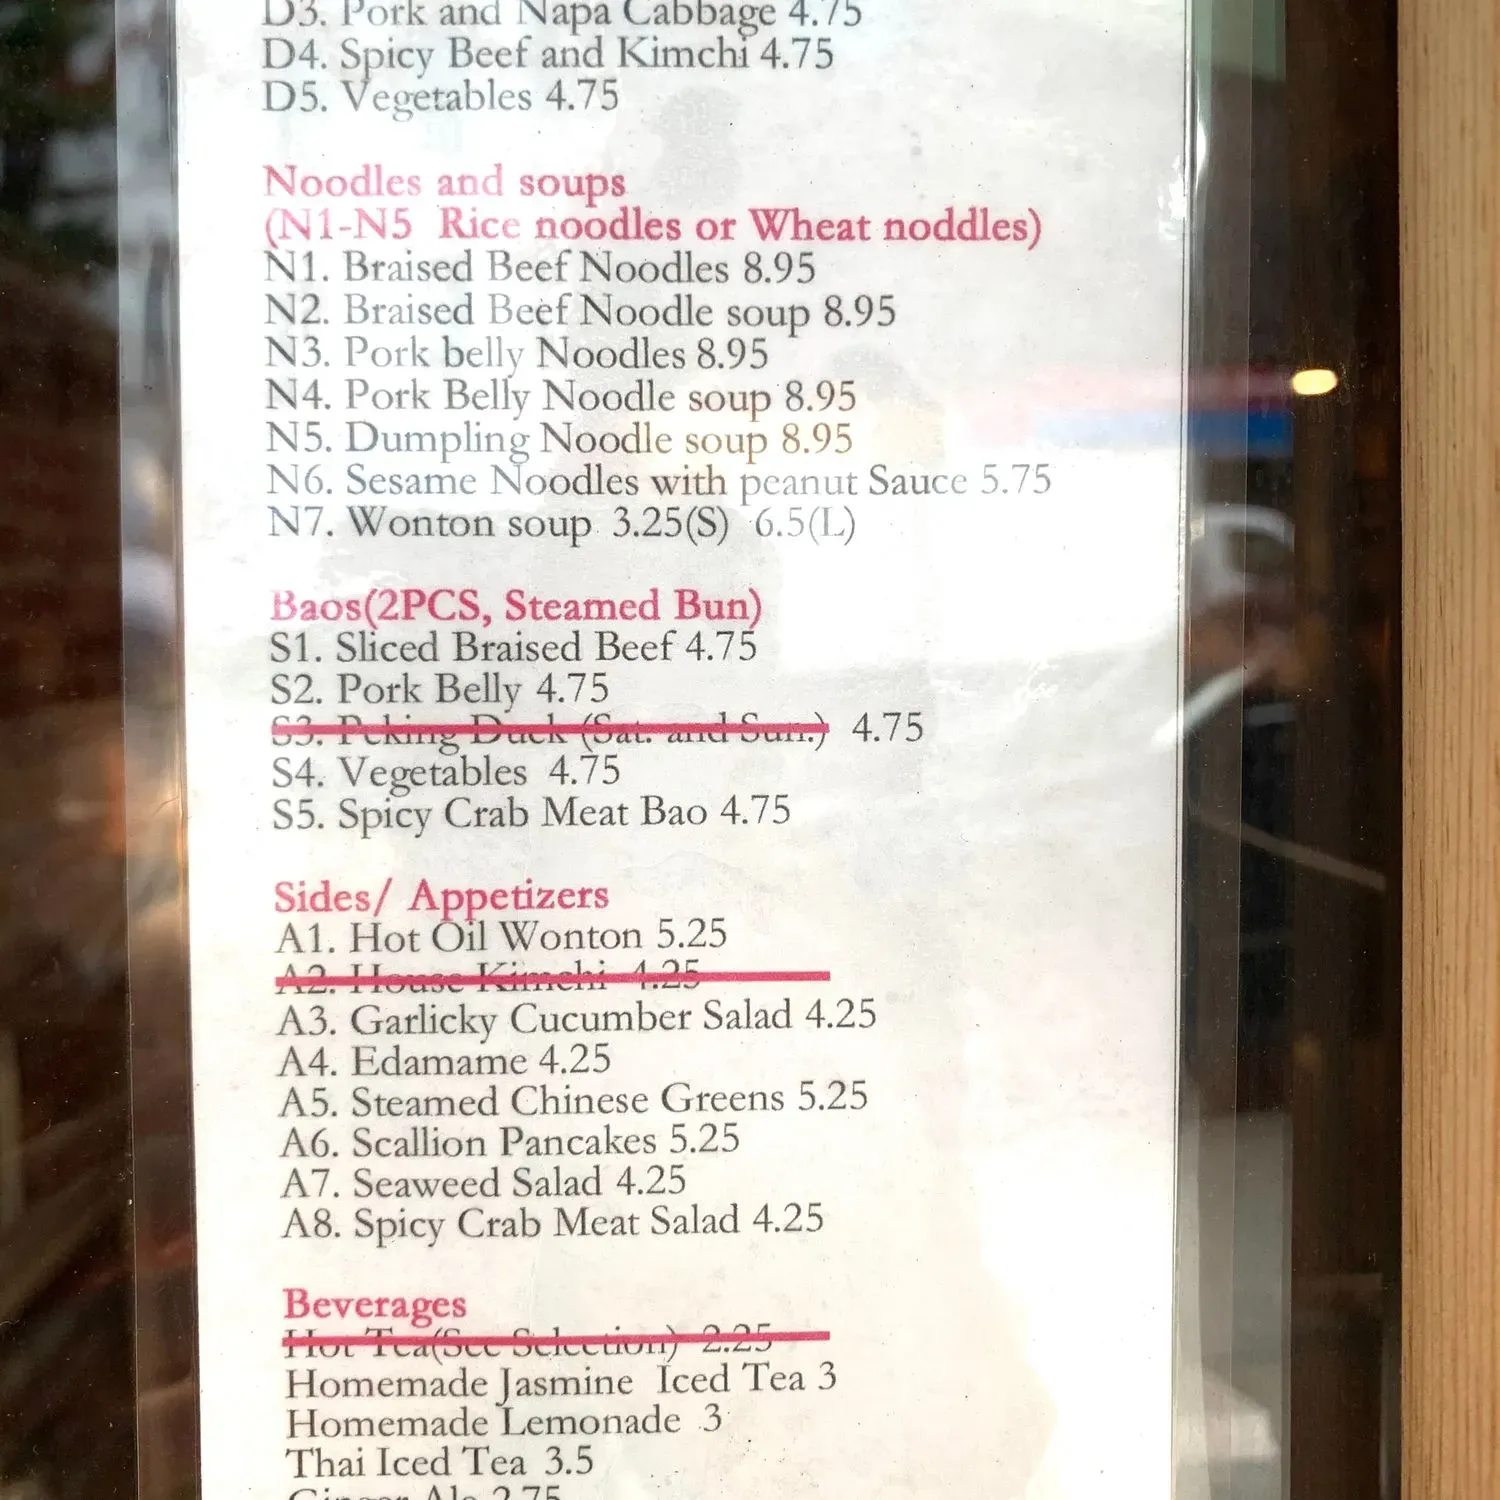 D3. Pork and Napa Cabbage 4.75
D4. Spicy Beef and Kimchi 4.75
D5. Vegetables 4.75
Noodles and soups
(N1-N5 Rice noodles or Wheat noddles)
N1. Braised Beef Noodles 8.95
N2. Braised Beef Noodle soup 8.95
N3. Pork belly Noodles 8.95
N4. Pork Belly Noodle soup 8.95
N5. Dumpling Noodle soup 8.95
N6. Sesame Noodles with peanut Sauce 5.75
N7. Wonton soup 3.25(S) 6.5(L)
Baos(2PCS, Steamed Bun)
S1. Sliced Braised Beef 4.75
S2. Pork Belly 4.75
S3. Peking Duck (Sat. and Sun.) 4.75
S4. Vegetables 4.75
S5. Spicy Crab Meat Bao 4.75
Sides/ Appetizers
A1. Hot Oil Wonton 5.25
A2. House Kimchi 4.25
A3. Garlicky Cucumber Salad 4.25
A4. Edamame 4.25
A5. Steamed Chinese Greens 5.25
A6. Scallion Pancakes 5.25
A7. Seaweed Salad 4.25
A8. Spicy Crab Meat Salad 4.25
Beverages
Hot Tea(See Selection) 2.25
Homemade Jasmine Iced Tea 3
Homemade Lemonade 3
Thai Iced Tea 3.5
Ginger Ale 2.75